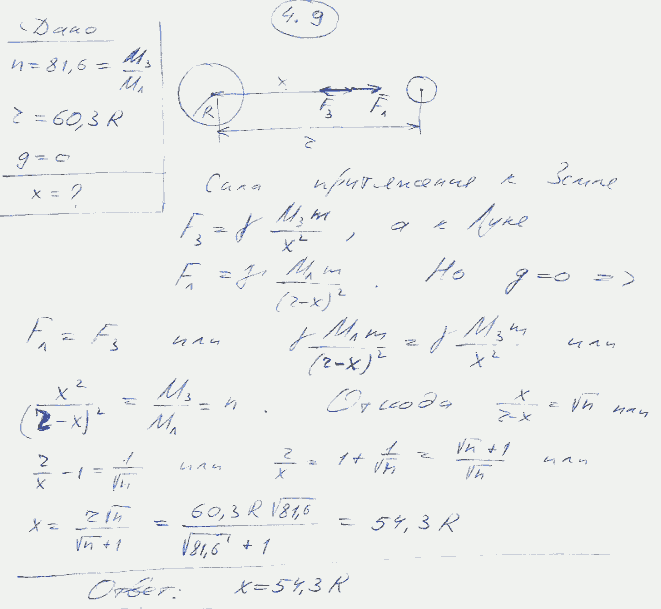 4.9
Дано
n = 81,6 = M₃/M₁
r = 60,3 R
g = 0
x = ?
x
R F₃ F₁
r
Сила притяжения к Земле
F₃ = γ M₃m/x², а к Луне
F₁ = γ M₁m/(r-x)². Но g=0 =>
F₁ = F₃ или γ M₁m/(r-x)² = γ M₃m/x² или
x²/(r-x)² = M₃/M₁ = n. Откуда x/(r-x) = √n или
r/x - 1 = 1/√n или r/x = 1 + 1/√n = (√n + 1)/√n или
x = r√n/(√n + 1) = 60,3 R √81,6/(√81,6 + 1) = 54,3 R
Ответ: x = 54,3 R